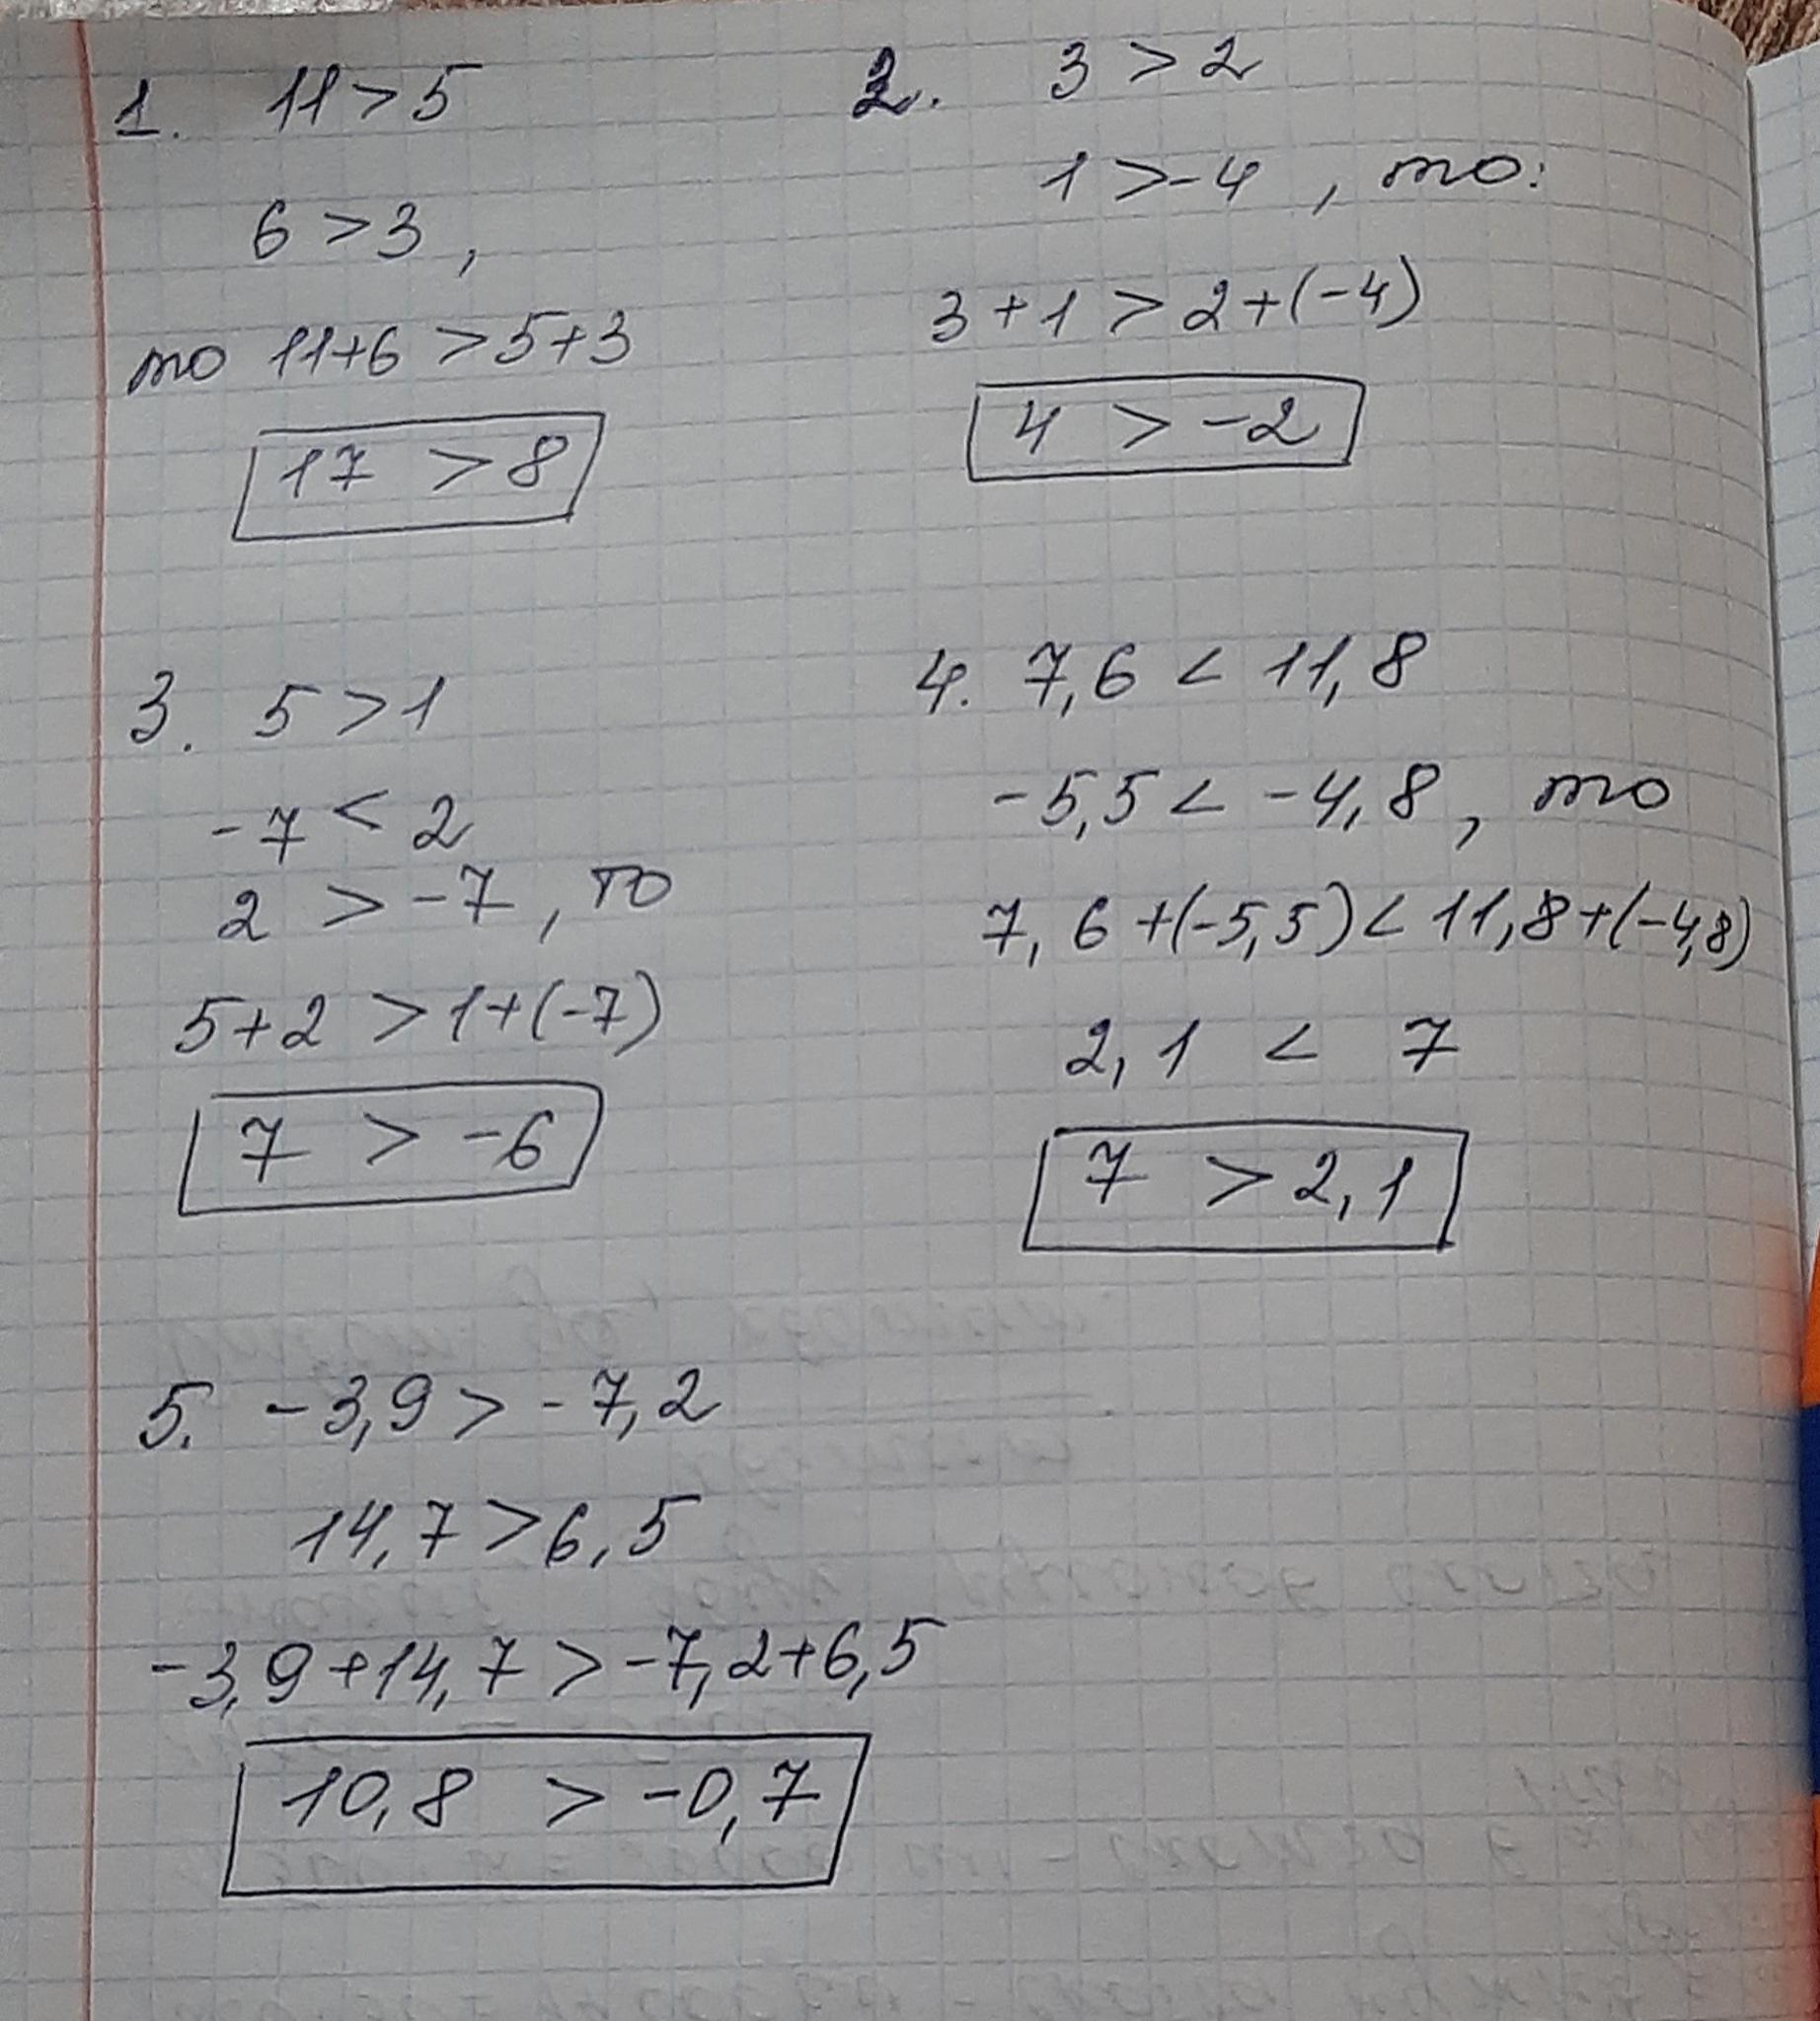 1. 11 > 5
6 > 3 ,
то 11+6 > 5+3
17 > 8
2. 3 > 2
1 > -4 , то:
3 + 1 > 2 + (-4)
4 > -2
3. 5 > 1
-7 < 2
2 > -7 , то
5+2 > 1+(-7)
7 > -6
4. 7,6 < 11,8
-5,5 < -4,8 , то
7,6 +(-5,5) < 11,8+(-4,8)
2,1 < 7
7 > 2,1
5. -3,9 > -7,2
14,7 > 6,5
-3,9+14,7 > -7,2+6,5
10,8 > -0,7